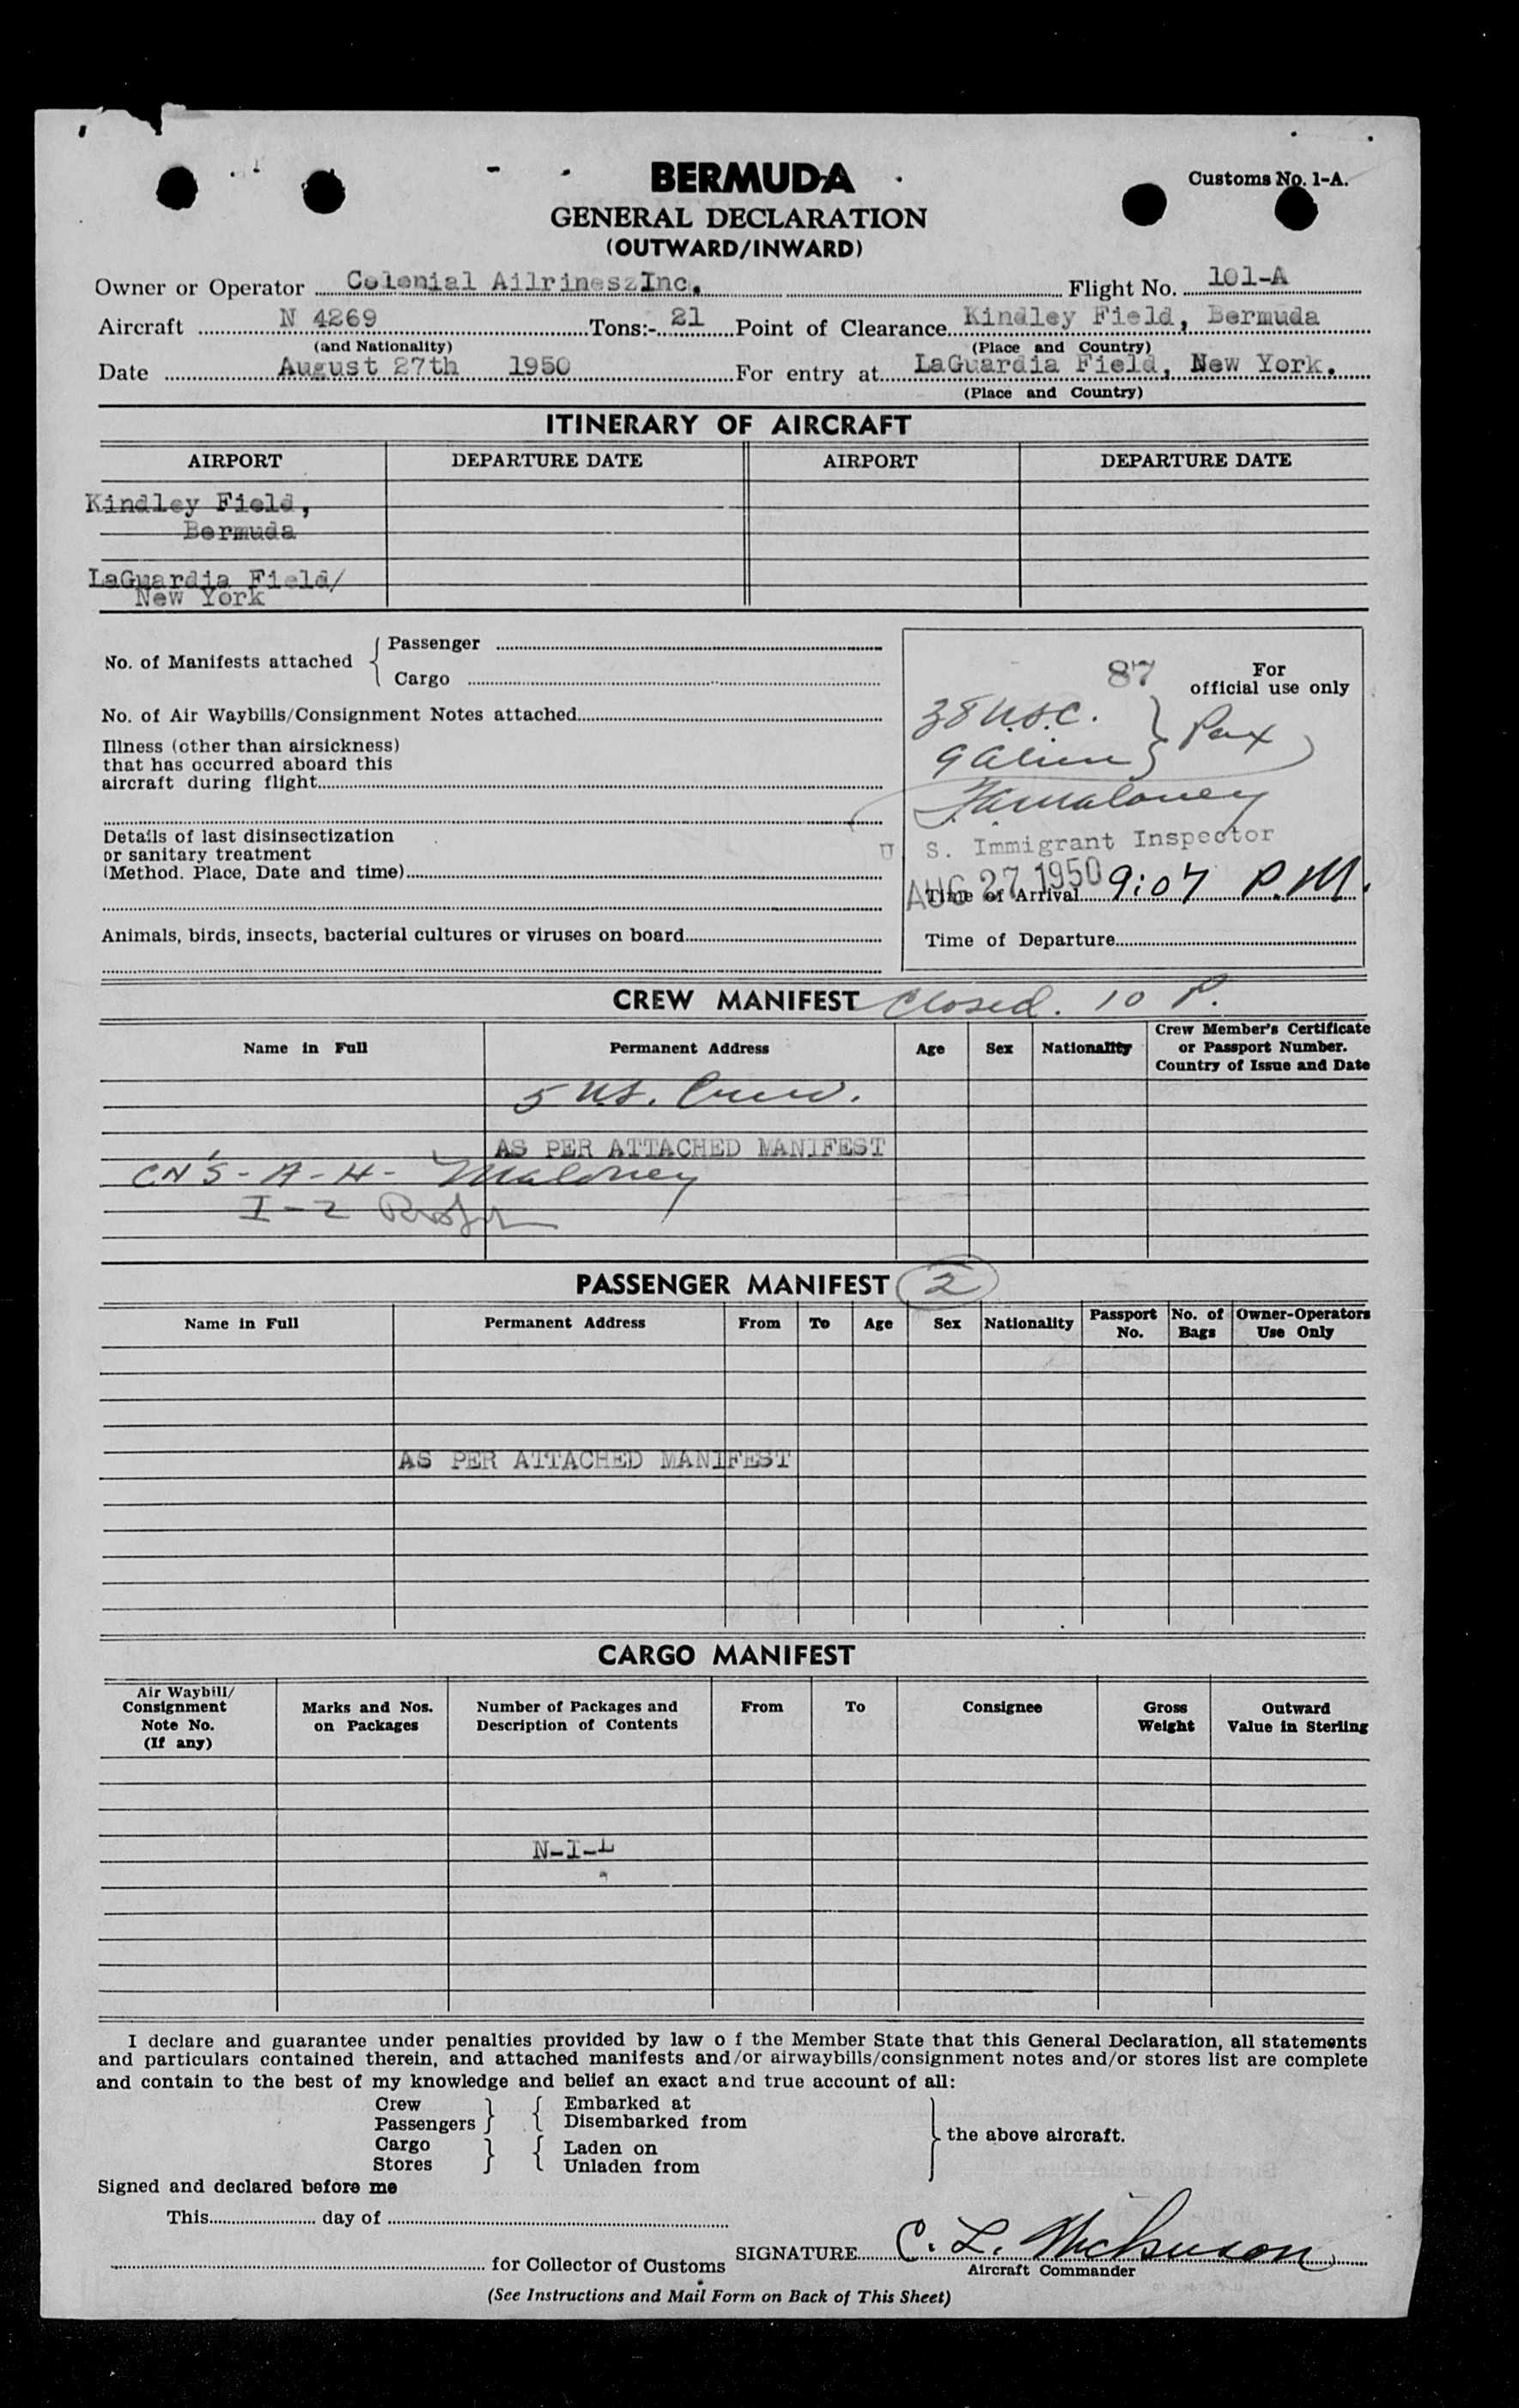 BERMUDA
Customs No. 1-A.
GENERAL DECLARATION
(OUTWARD/INWARD)
Owner or Operator Colonial AilrineszInc. Flight No. 101-A
Aircraft N 4269 Tons:- 21 Point of Clearance Kindley Field, Bermuda
(and Nationality) (Place and Country)
Date August 27th 1950 For entry at LaGuardia Field, New York.
(Place and Country)
ITINERARY OF AIRCRAFT
AIRPORT DEPARTURE DATE AIRPORT DEPARTURE DATE
Kindley Field,
Bermuda
LaGuardia Field/
New York
No. of Manifests attached { Passenger
Cargo
87 For
official use only
No. of Air Waybills/Consignment Notes attached
38 U.S.C. } Pax
9 Alien
Illness (other than airsickness)
that has occurred aboard this
aircraft during flight
Maloney
Details of last disinsectization
or sanitary treatment
(Method. Place, Date and time)
U S. Immigrant Inspector
AUG 27 1950
Time of Arrival 9:07 P.M.
Animals, birds, insects, bacterial cultures or viruses on board
Time of Departure
CREW MANIFEST Closed. 10 P.
Name in Full Permanent Address Age Sex Nationality Crew Member's Certificate
or Passport Number.
Country of Issue and Date
5 U.S. Crew.
AS PER ATTACHED MANIFEST
CN'S - A - H - Maloney
I - 2
PASSENGER MANIFEST 2
Name in Full Permanent Address From To Age Sex Nationality Passport No. No. of Bags Owner-Operators Use Only
AS PER ATTACHED MANIFEST
CARGO MANIFEST
Air Waybill/
Consignment
Note No.
(If any)
Marks and Nos.
on Packages
Number of Packages and
Description of Contents
From To Consignee Gross
Weight
Outward
Value in Sterling
N-I-L
I declare and guarantee under penalties provided by law o f the Member State that this General Declaration, all statements
and particulars contained therein, and attached manifests and/or airwaybills/consignment notes and/or stores list are complete
and contain to the best of my knowledge and belief an exact and true account of all:
Crew } { Embarked at
Passengers Disembarked from
the above aircraft.
Cargo } { Laden on
Stores Unladen from
Signed and declared before me
This day of
for Collector of Customs SIGNATURE C. L.
Aircraft Commander
(See Instructions and Mail Form on Back of This Sheet)